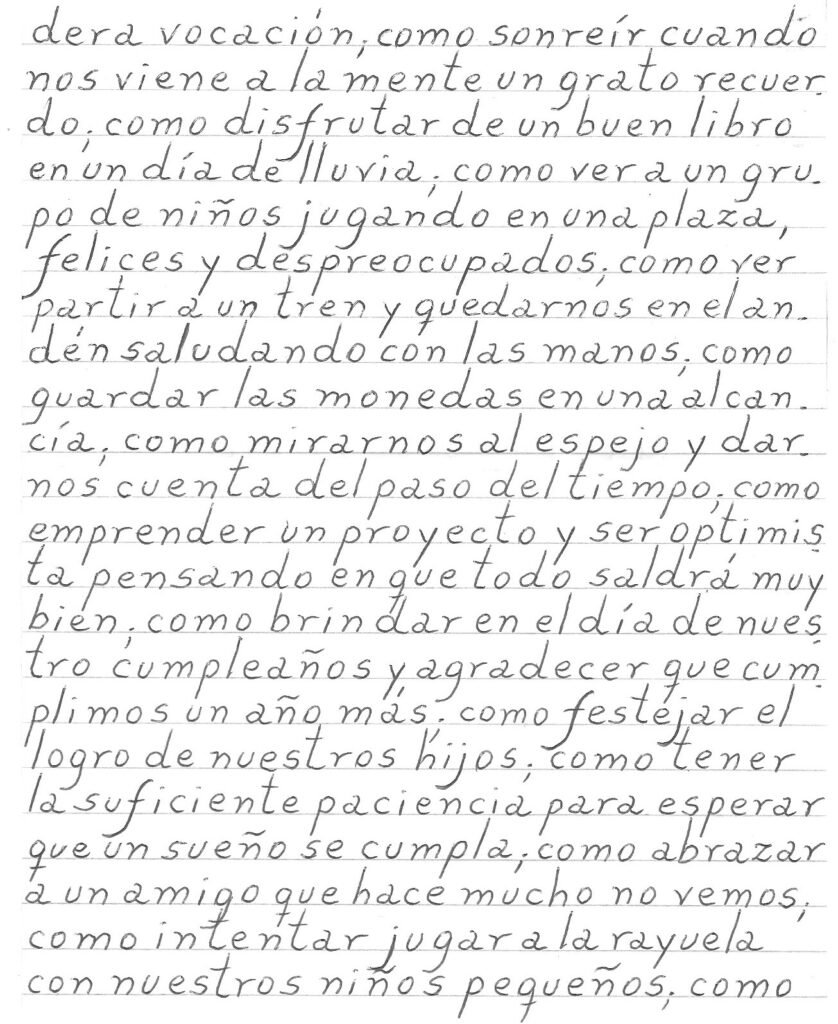 dera vocación; como sonreír cuando
nos viene a la mente un grato recuer-
do; como disfrutar de un buen libro
en un día de lluvia; como ver a un gru-
po de niños jugando en una plaza,
felices y despreocupados; como ver
partir a un tren y quedarnos en el an-
dén saludando con las manos; como
guardar las monedas en una alcan-
cía; como mirarnos al espejo y dar-
nos cuenta del paso del tiempo; como
emprender un proyecto y ser optimis-
ta pensando en que todo saldrá muy
bien; como brindar en el día de nues-
tro cumpleaños y agradecer que cum-
plimos un año más; como festejar el
logro de nuestros hijos; como tener
la suficiente paciencia para esperar
que un sueño se cumpla; como abrazar
a un amigo que hace mucho no vemos;
como intentar jugar a la rayuela
con nuestros niños pequeños; como